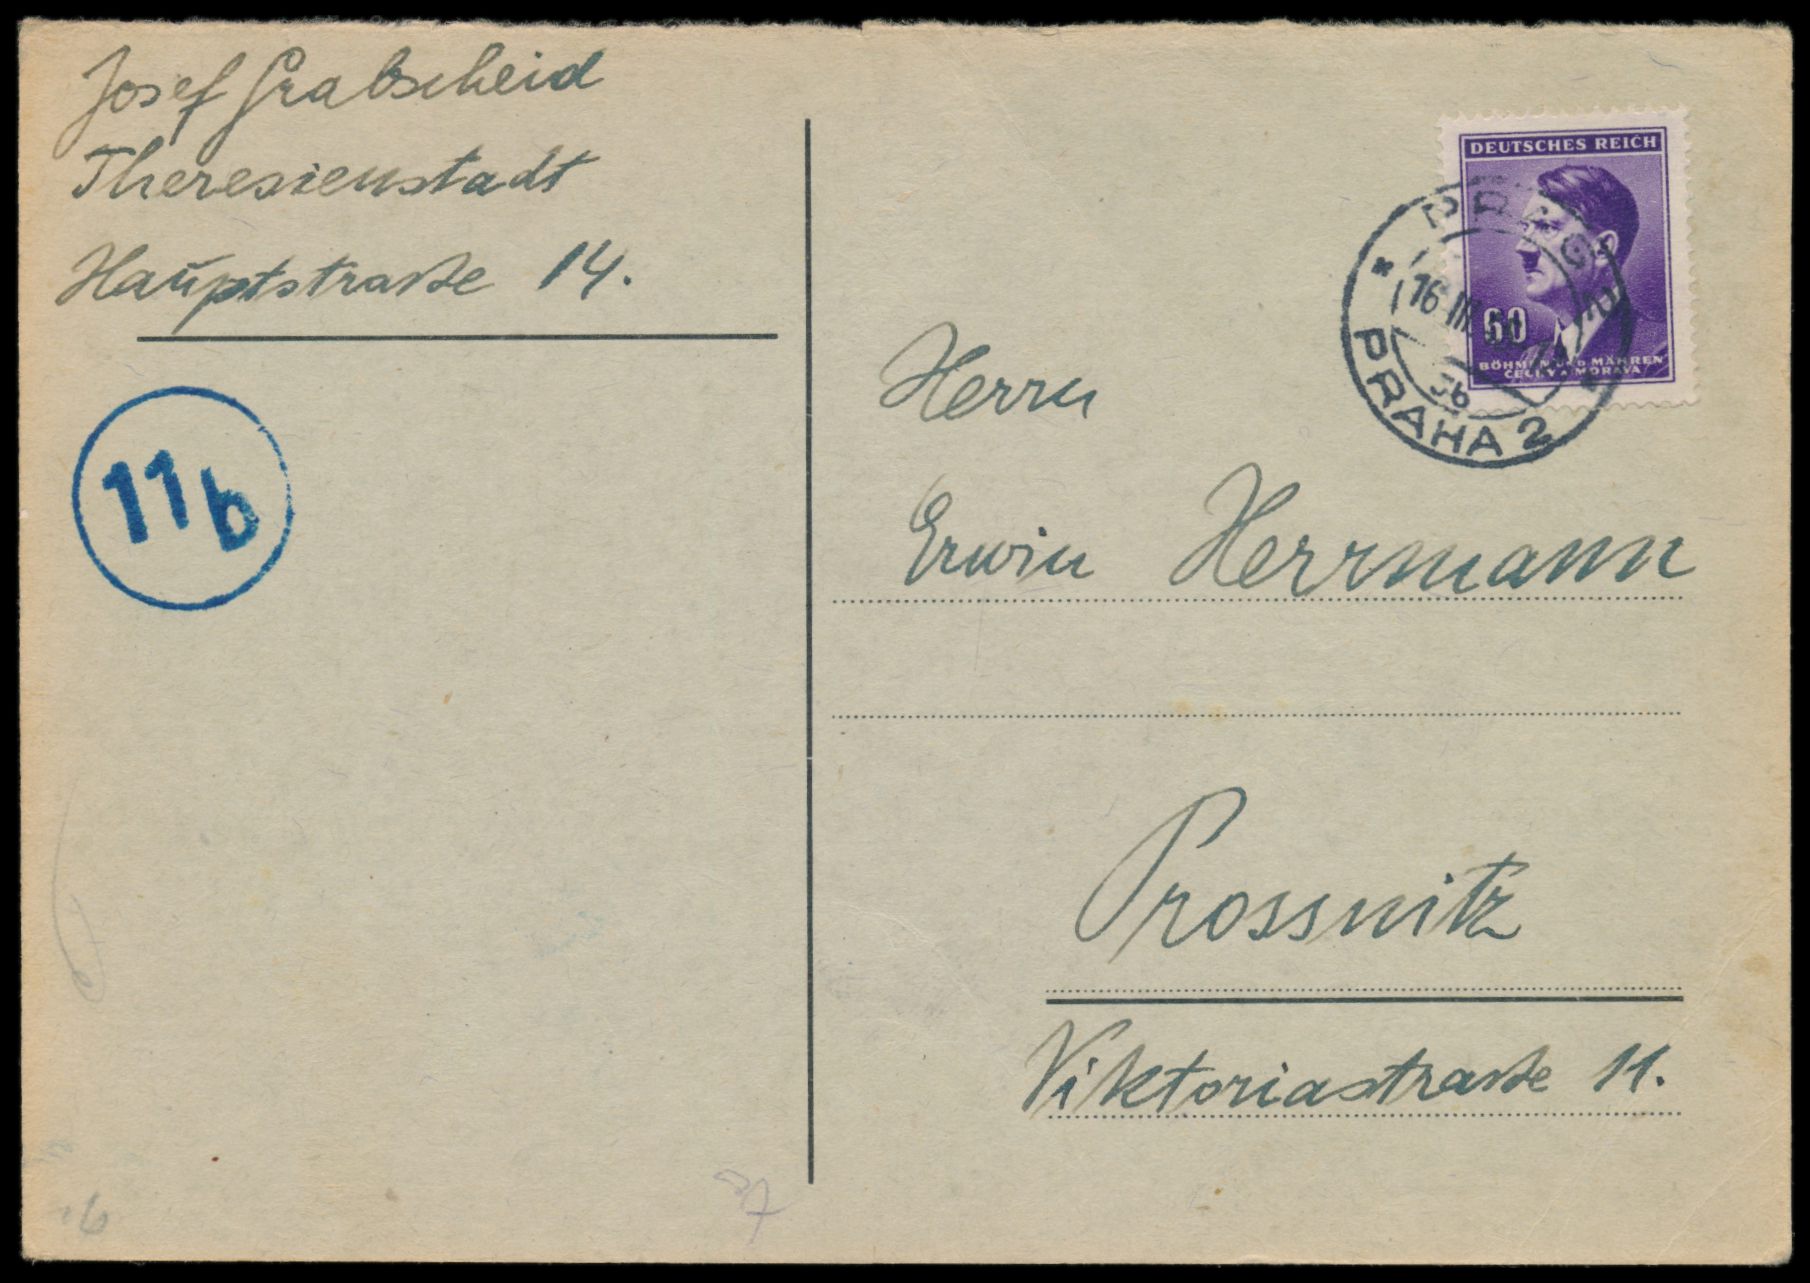 Josef Grabscheid
Theresienstadt
Hauptstraße 14.
11b
DEUTSCHES REICH
60
BÖHMEN UND MÄHREN
ČECHY A MORAVA
PRAG 2
16 III
PRAHA 2
Herrn
Erwin Herrmann
Prossnitz
Viktoriastraße 11.